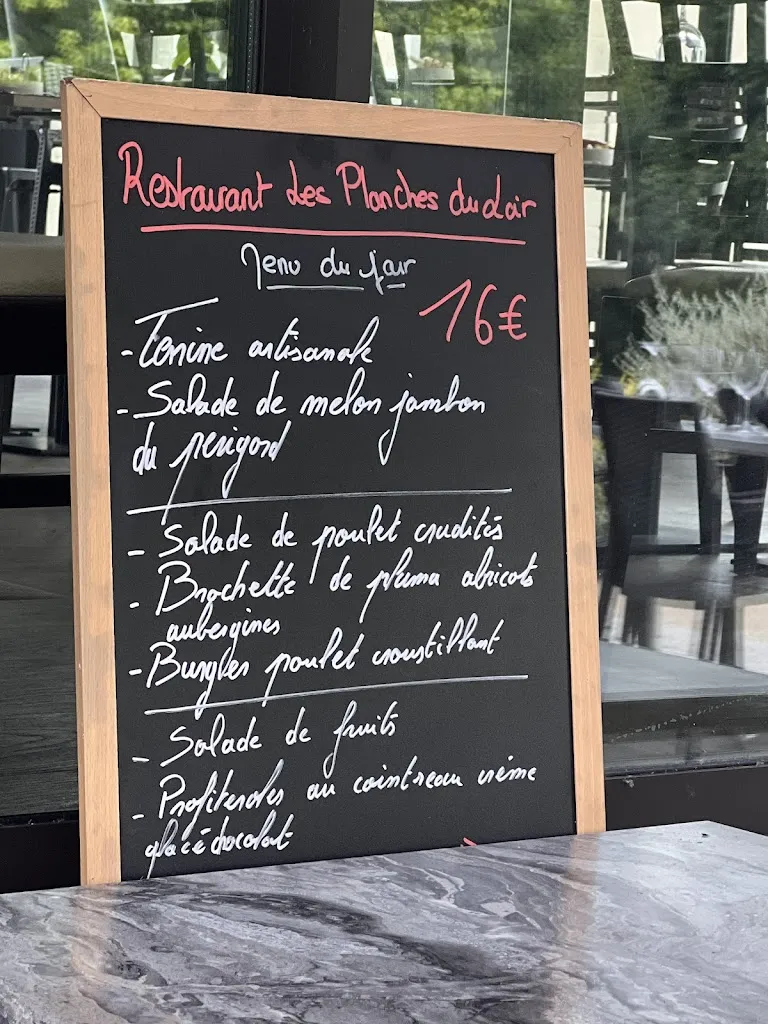 Restaurant Les Planches du Loir
Menu du jour
16€
- Terrine artisanale
- Salade de melon jambon
du périgord
- Salade de poulet crudités
- Brochette de pluma abricots
aubergines
- Burger poulet croustillant
- Salade de fruits
- Profiteroles au cointreau crème
glacé chocolat